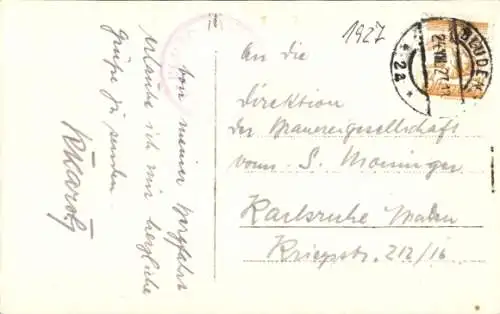 von meiner Bergfahrt
erlaube ich mir herzliche
Grüße zu senden
1927
BLUDENZ
24.VIII.27
* 2a *
An die
Direktion
der Brauereigesellschaft
vorm. S. Moninger
Karlsruhe Baden
Kriegstr. 212/16